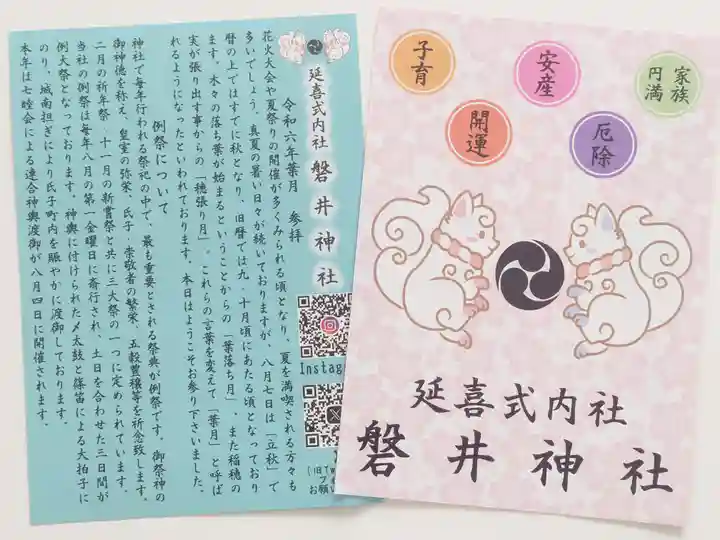 延喜式内社 磐井神社
令和六年葉月 参拝
花火大会や夏祭りの開催が多くみられる頃となり、夏を満喫される方々も
多いでしょう。真夏の暑い日々が続いておりますが、八月七日は「立秋」で
暦の上ではすでに秋となり、旧暦では九、十月頃にあたる頃となっており
ます。木々の落ち葉が始まるということからの「葉落ち月」、また稲穂の
実が張り出す事からの「穂張り月」。これらの言葉を変えて「葉月」と呼ば
れるようになったといわれております。本日はようこそお参り下さいました。
例祭について
神社で毎年行われる祭祀の中で、最も重要とされる祭典が例祭です。御祭神の
御神徳を称え、皇室の弥栄、氏子・崇敬者の繁栄、五穀豊穣等を祈念致します。
二月の祈年祭、十一月の新嘗祭と共に三大祭の一つに定められています。
当社の例祭は毎年八月の第一金曜日に斎行され、土日を合わせた三日間が
例大祭となっております。神輿に付けられた〆太鼓と篠笛による大拍子に
のり、城南担ぎにより氏子町内を賑やかに渡御しております。
本年は七睦会による連合神輿渡御が八月四日に開催されます。
Instag
子育
安産
家族
円満
開運
厄除
延喜式内社
磐井神社